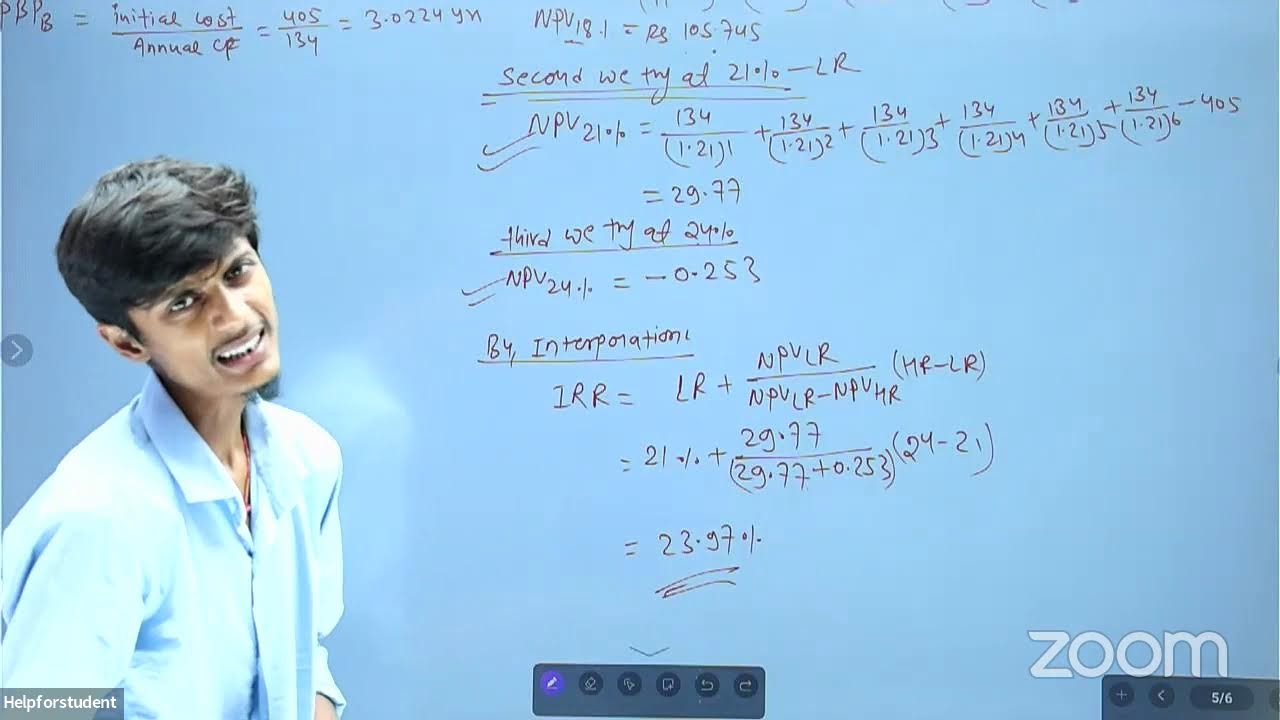 PBP_B = initial cost / Annual CF = 405 / 134 = 3.0224 yr
NPV_18% = Rs 105.745
Second we try at 21% - LR
NPV_21% = 134/(1.21)1 + 134/(1.21)2 + 134/(1.21)3 + 134/(1.21)4 + 134/(1.21)5 + 134/(1.21)6 - 405
= 29.77
third we try at 24%
NPV_24% = -0.253
By, Interporation:
IRR = LR + NPV_LR / NPV_LR - NPV_HR (HR-LR)
= 21% + 29.77 / (29.77+0.253) (24-21)
= 23.97%
zoom
5/6
Helpforstudent